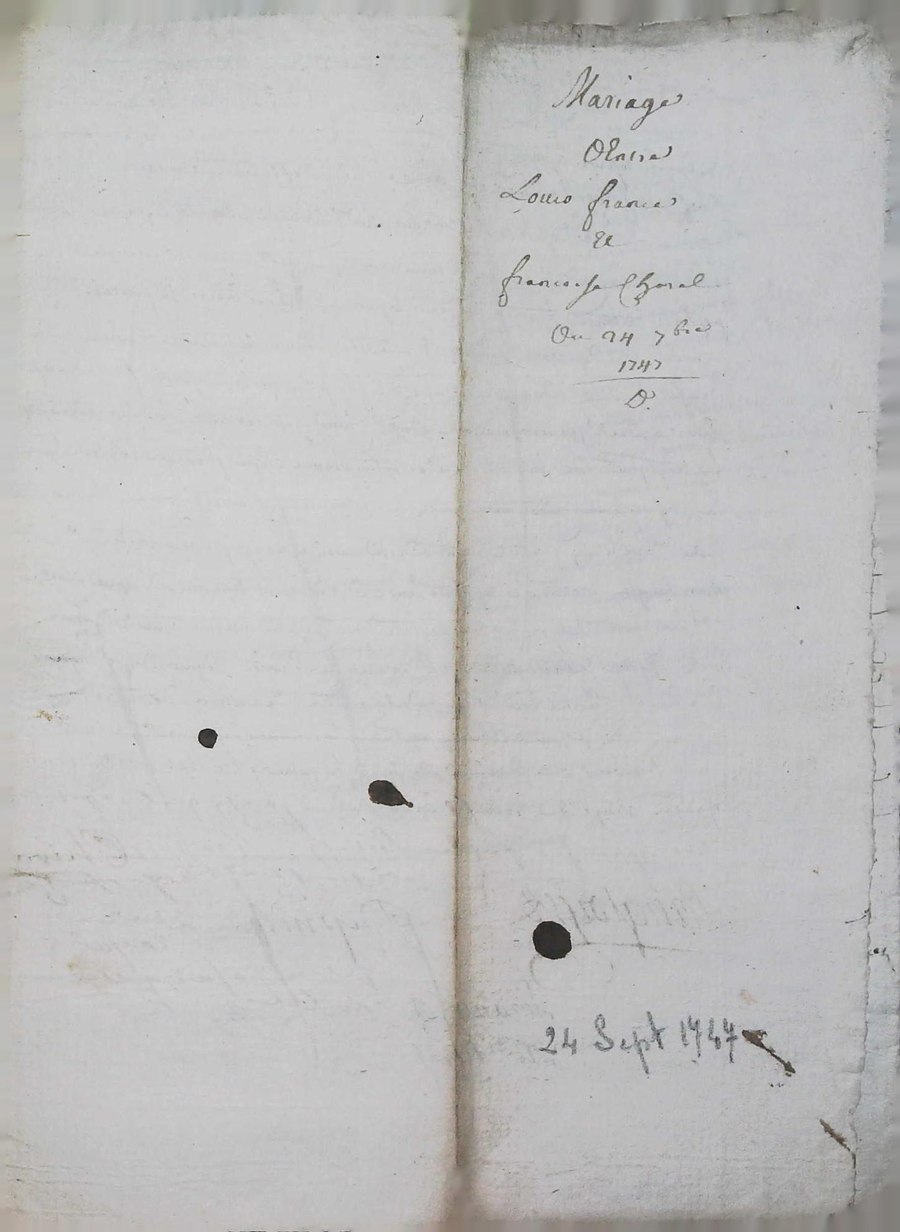 Mariage
D'Entre
Louis france
Et
francoise Choral
Du 24 7bre
1747
D.
24 Sept 1747